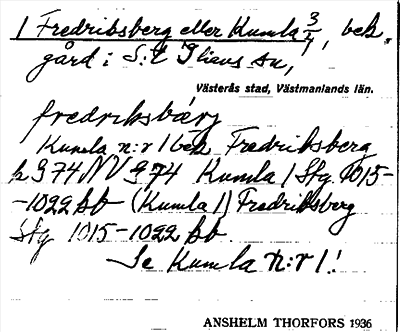 1 Fredriksberg eller Kumla 3/4, bek.
gård i S:t Ilians sn,
Västerås stad, Västmanlands län.
fredriksbärg
Kumla n:r 1 bek Fredriksberg
k G 74 NV G 74 Kumla 1 Sfg. 1015-
-1022 bb (Kumla 1) Fredriksberg
Sfg 1015-1022 bb.
Se Kumla n:r 1!
ANSHELM THORFORS 1936